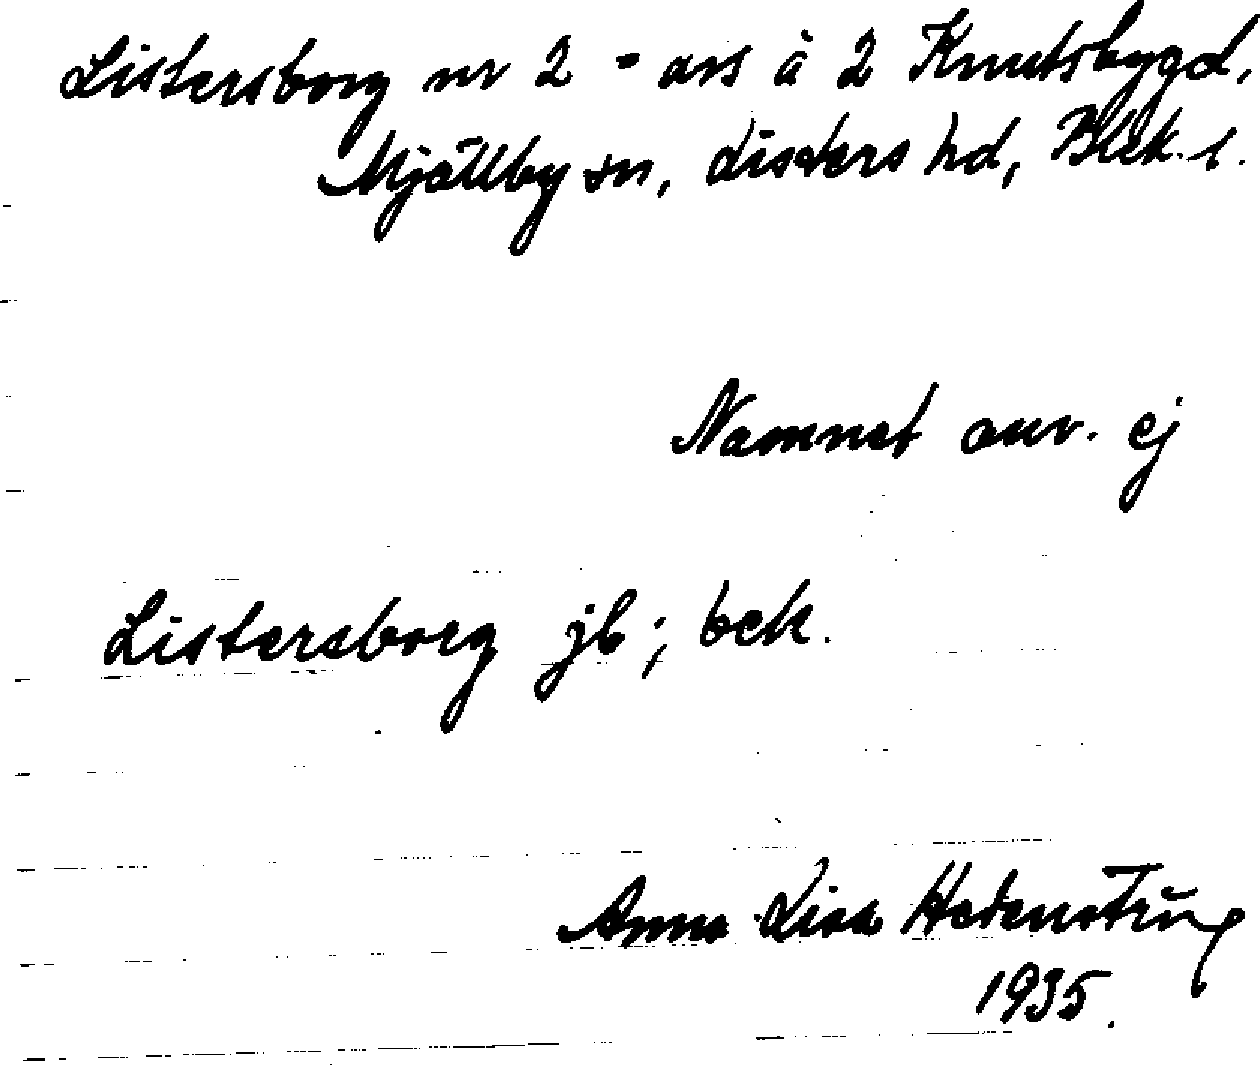 Listersborg nr 2 - avs å 2 Knutsbygd,
Mjällby sn, Listers hd, Blek. l.
Namnet anv. ej
Listersborg jb; bek.
Anna Lisa Hedenstrüg
1935.